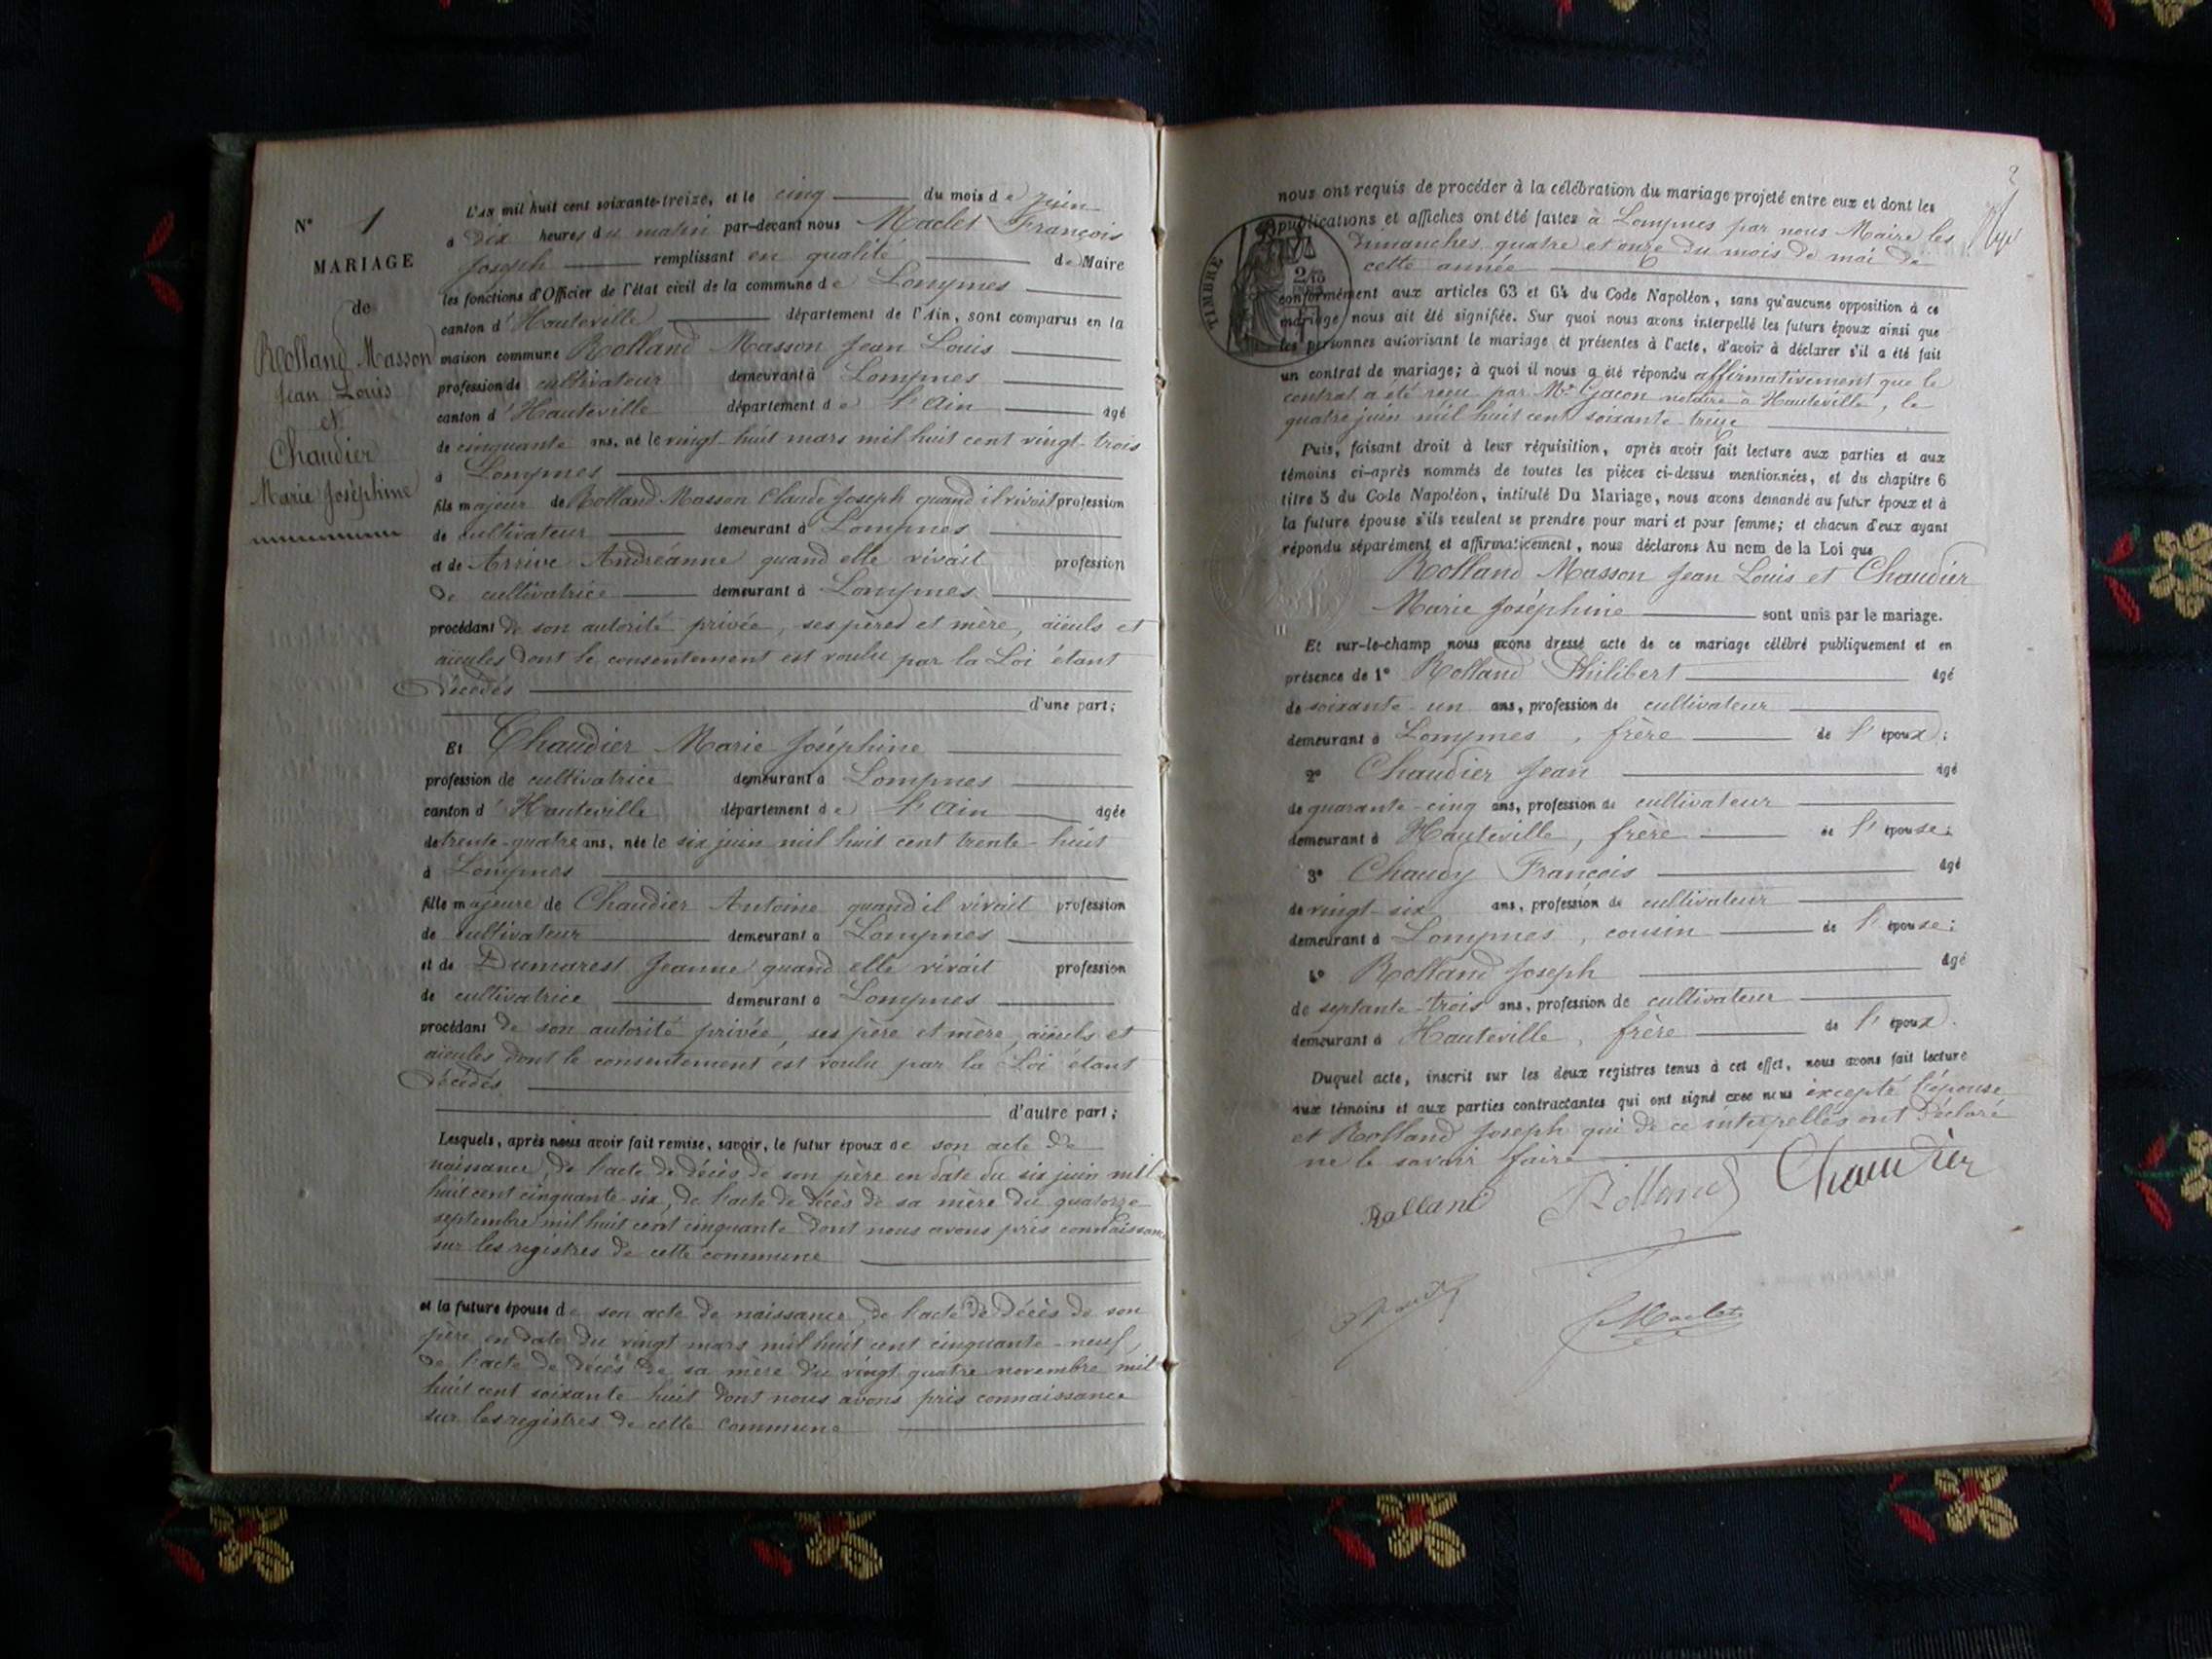 N° 1
MARIAGE
de
Rolland Masson
Jean Louis
et
Chaudier
Marie Joséphine
L'AN mil huit cent soixante-treize, et le cinq du mois de juin
à dix heures du matin par-devant nous Maclet François
Joseph remplissant en qualité de Maire
les fonctions d'Officier de l'état civil de la commune de Lompnes
canton d'Hauteville département de l'Ain, sont comparus en la
maison commune Rolland Masson Jean Louis
profession de cultivateur demeurant à Lompnes
canton d'Hauteville département de l'Ain âgé
de cinquante ans, né le vingt-huit mars mil huit cent vingt-trois
à Lompnes
fils majeur de Rolland Masson Claude Joseph quand il vivait profession
de cultivateur demeurant à Lompnes
et de Arrive Andréanne quand elle vivait profession
de cultivatrice demeurant à Lompnes
procédant de son autorité privée, ses pères et mère, aïeuls et
aïeules dont le consentement est voulu par la Loi étant
décédés
d'une part;
Et Chaudier Marie Joséphine
profession de cultivatrice demeurant à Lompnes
canton d'Hauteville département de l'Ain âgée
de trente-quatre ans, née le six juin mil huit cent trente-huit
à Lompnes
fille majeure de Chaudier Antoine quand il vivait profession
de cultivateur demeurant à Lompnes
et de Dumarest Jeanne quand elle vivait profession
de cultivatrice demeurant à Lompnes
procédant de son autorité privée, ses père et mère, aïeuls et
aïeules dont le consentement est voulu par la Loi étant
décédés
d'autre part;
Lesquels, après nous avoir fait remise, savoir, le futur époux de son acte de
naissance, de l'acte de décès de son père en date du six juin mil
huit cent cinquante-six, de l'acte de décès de sa mère du quatorze
septembre mil huit cent cinquante dont nous avons pris connaissance
sur les registres de cette commune
et la future épouse de son acte de naissance, de l'acte de décès de son
père en date du vingt mars mil huit cent cinquante-neuf,
de l'acte de décès de sa mère du vingt-quatre novembre mil
huit cent soixante huit dont nous avons pris connaissance
sur les registres de cette commune
2
nous ont requis de procéder à la célébration du mariage projeté entre eux et dont les
publications et affiches ont été faites à Lompnes par nous Maire les
dimanches quatre et onze du mois de mai de
cette année
TIMBRE
conformément aux articles 63 et 64 du Code Napoléon, sans qu'aucune opposition à ce
mariage nous ait été signifiée. Sur quoi nous avons interpellé les futurs époux ainsi que
les personnes autorisant le mariage et présentes à l'acte, d'avoir à déclarer s'il a été fait
un contrat de mariage; à quoi il nous a été répondu affirmativement que le
contrat a été reçu par Me Gacon notaire à Hauteville, le
quatre juin mil huit cent soixante-treize
Puis, faisant droit à leur réquisition, après avoir fait lecture aux parties et aux
témoins ci-après nommés de toutes les pièces ci-dessus mentionnées, et du chapitre 6
titre 5 du Code Napoléon, intitulé Du Mariage, nous avons demandé au futur époux et à
la future épouse s'ils veulent se prendre pour mari et pour femme; et chacun d'eux ayant
répondu séparément et affirmativement, nous déclarons Au nom de la Loi que
Rolland Masson Jean Louis et Chaudier
Marie Joséphine sont unis par le mariage.
Et sur-le-champ nous avons dressé acte de ce mariage célébré publiquement et en
présence de 1° Rolland Philibert âgé
de soixante-un ans, profession de cultivateur
demeurant à Lompnes, frère de l'époux;
2° Chaudier Jean âgé
de quarante-cinq ans, profession de cultivateur
demeurant à Hauteville, frère de l'épouse;
3° Chaudy François âgé
de vingt-six ans, profession de cultivateur
demeurant à Lompnes, cousin de l'épouse;
4° Rolland Joseph âgé
de septante-trois ans, profession de cultivateur
demeurant à Hauteville, frère de l'époux.
Duquel acte, inscrit sur les deux registres tenus à cet effet, nous avons fait lecture
aux témoins et aux parties contractantes qui ont signé avec nous excepté l'épouse
et Rolland Joseph qui de ce interpellés ont déclaré
ne le savoir faire
Rolland Rolland Chaudier
Maclet